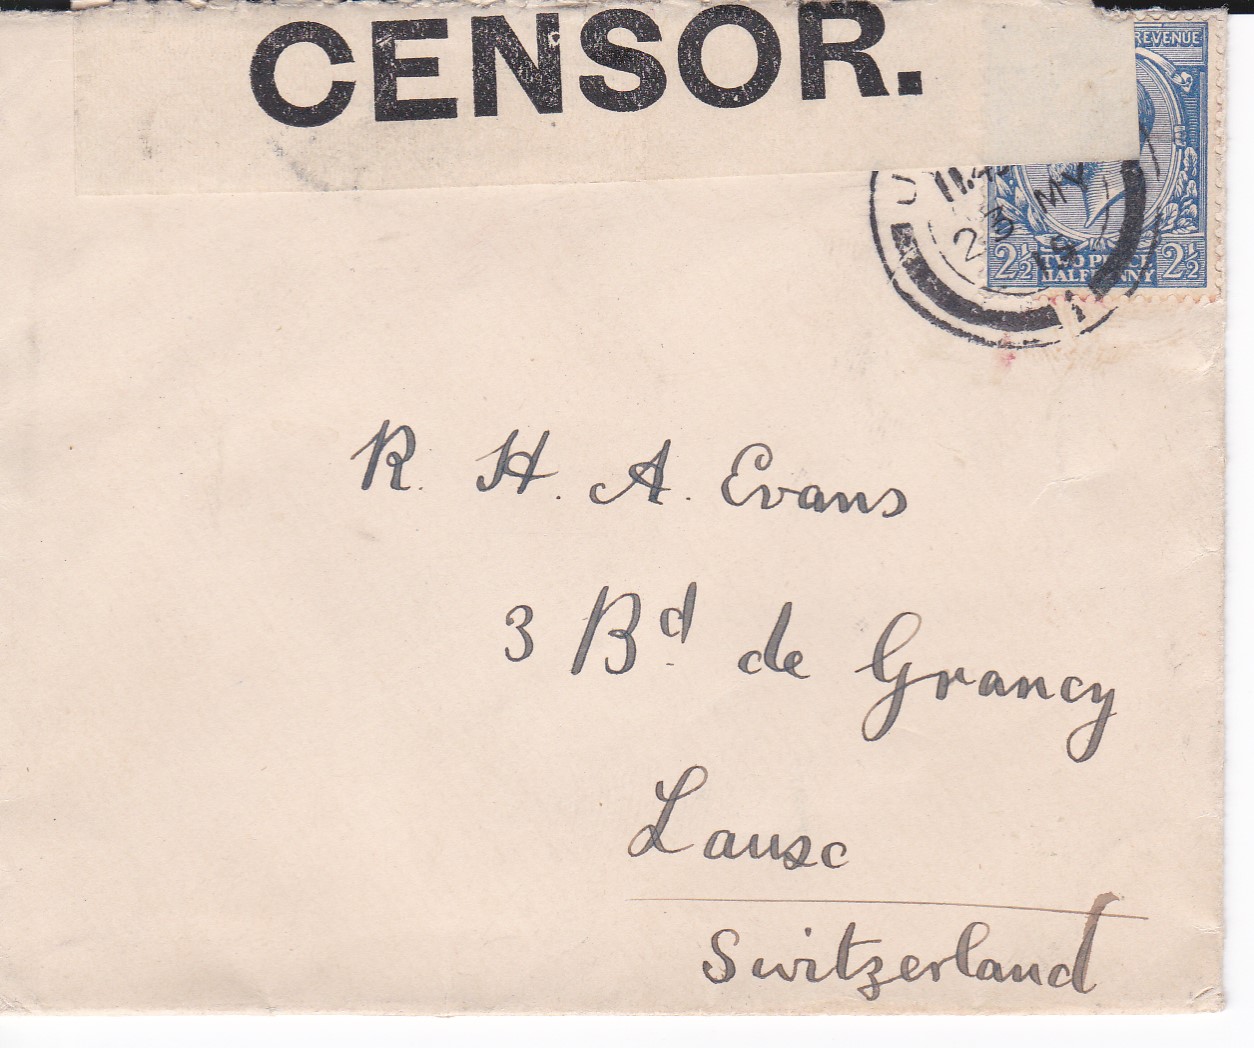 CENSOR.
REVENUE
11.45
23 MY
19
2½ TWO PENCE HALFPENNY 2½
R. H. A. Evans
3 Bd de Grancy
Lausc
Switzerland